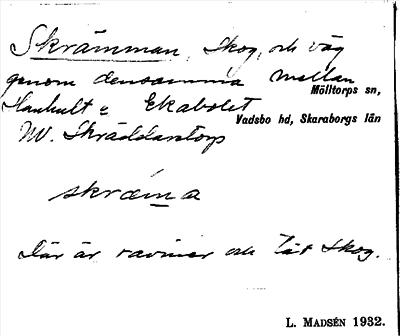 Skrämman, Skog, och väg
genom densamma mellan
Mölltorps sn,
Hanhult o Ekabolet
Vadsbo hd, Skaraborgs län
NV. Skräddaretorp
skræma
Där är raviner och tät skog.
L. MADSÉN 1932.